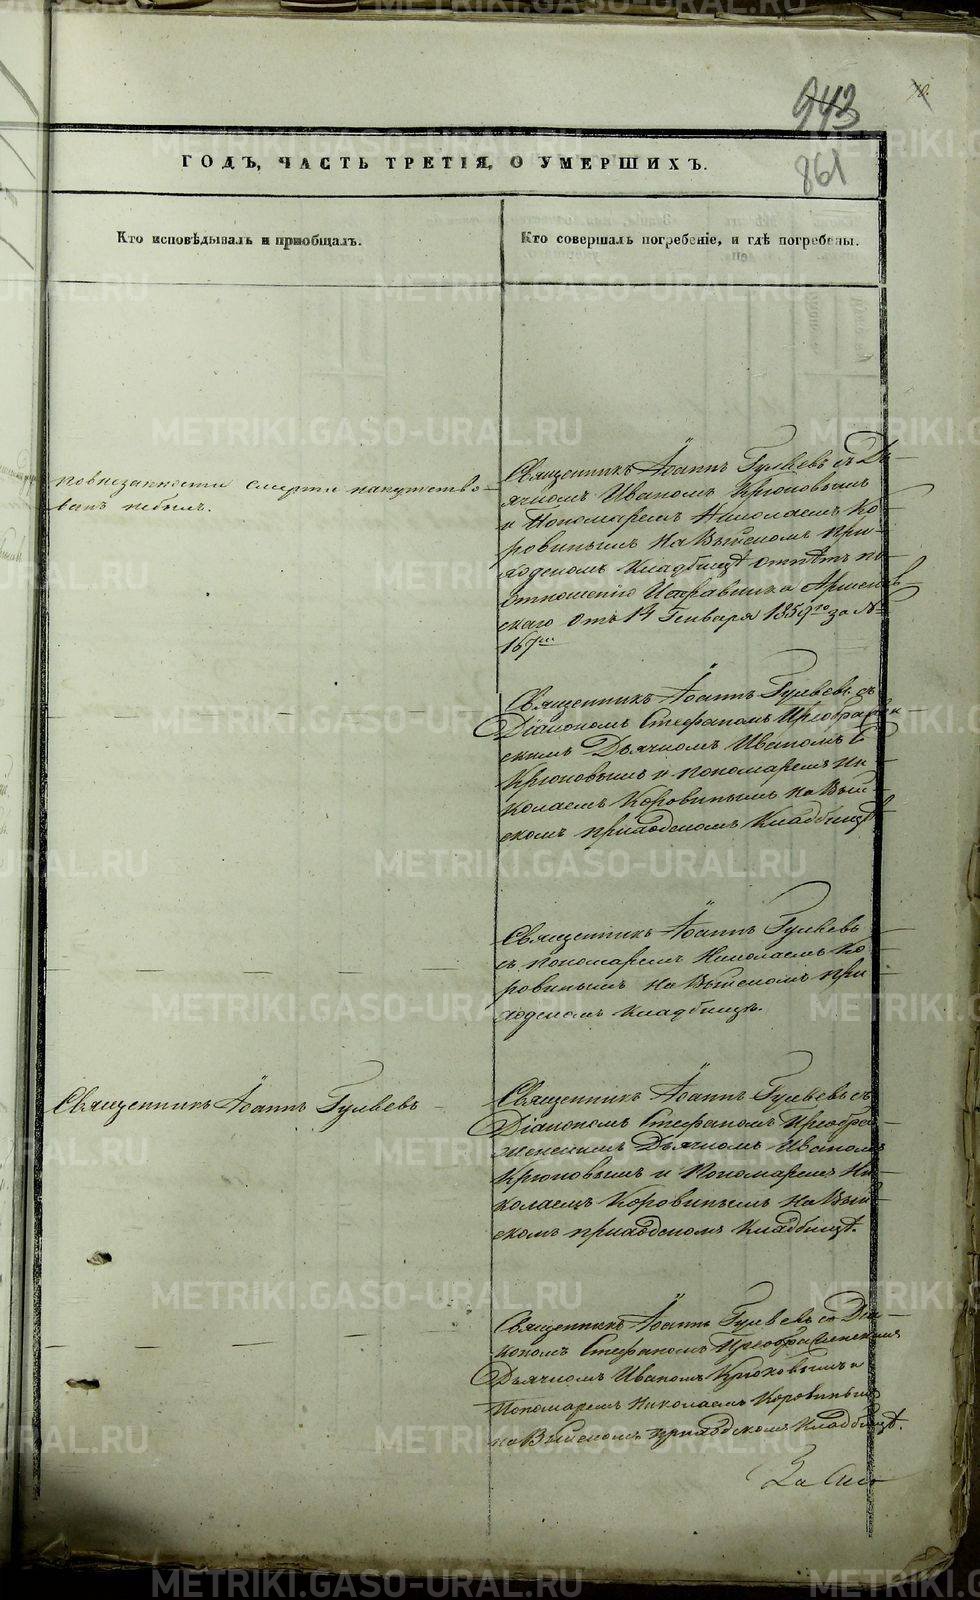 943
861
ГОДЪ, ЧАСТЬ ТРЕТІЯ, О УМЕРШИХЪ.
Кто исповѣдывалъ и пріобщалъ.
Кто совершалъ погребеніе, и гдѣ погребены.
повнезапности смерти напутство-
ванъ небылъ.
Священникъ Іоаннъ Гуляевъ съ Дь-
ячкомъ Иваномъ Крюковымъ
и Пономаремъ Николаемъ Ко-
ровинымъ на Выйскомъ при-
ходскомъ кладбищѣ отпѣтъ по
отношенію Исправника
скаго отъ 14 Генваря 1859го за №
167мъ
Священникъ Іоаннъ Гуляевъ съ
Діакономъ Стефаномъ Преображен-
скимъ Дьячкомъ Иваномъ
Крюковымъ и пономаремъ Ни-
колаемъ Коровинымъ на Вый-
скомъ приходскомъ кладбищѣ
Священникъ Іоаннъ Гуляевъ
съ пономаремъ Николаемъ Ко-
ровинымъ на Выйскомъ при
ходскомъ кладбищѣ.
Священникъ Іоаннъ Гуляевъ
Священникъ Іоаннъ Гуляевъ съ
Діакономъ Стефаномъ Преобра-
женскимъ Дьячкомъ Иваномъ
Крюковымъ и Пономаремъ Ни-
колаемъ Коровинымъ на Вый-
скомъ приходскомъ кладбищѣ.
Священникъ Іоаннъ Гуляевъ съ Діа-
кономъ Стефаномъ Преображенскимъ
Дьячкомъ Иваномъ Крюковымъ и
Пономаремъ Николаемъ Коровинымъ
на Выйскомъ приходскомъ кладбищѣ.
METRIKI.GASO-URAL.RU